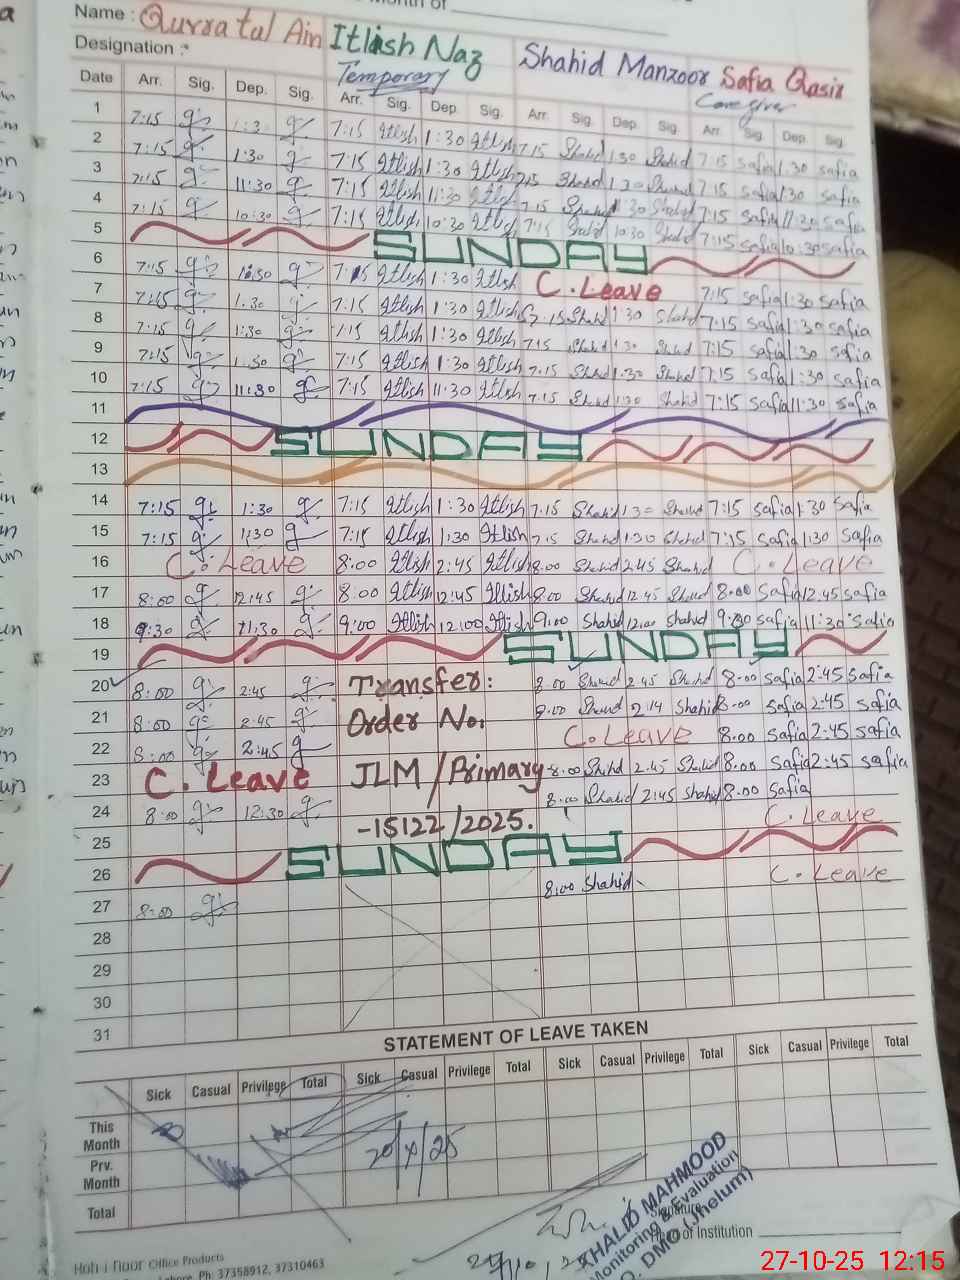 Name : Qurratul Ain Itlish Naz Shahid Manzoor Safia Qasir
Designation : Temporary Caregiver
Date Arr. Sig. Dep. Sig. Arr. Sig. Dep. Sig. Arr. Sig. Dep. Sig. Arr. Sig. Dep. Sig.
1 7:15 1:30 7:15 Itlish 1:30 Itlish 7:15 Shahid 1:30 Shahid 7:15 Safia 1:30 safia
2 7:15 1:30 7:15 Itlish 1:30 Itlish 7:15 Shahid 1:30 Shahid 7:15 safia 1:30 safia
3 7:15 11:30 7:15 Itlish 11:30 Itlish 7:15 Shahid 11:30 Shahid 7:15 safia 11:30 safia
4 7:15 10:30 7:15 Itlish 10:30 Itlish 7:15 Shahid 10:30 Shahid 7:15 safia 10:30 safia
5 SUNDAY
6 7:15 1:30 7:15 Itlish 1:30 Itlish C.Leave 7:15 safia 1:30 safia
7 7:15 1:30 7:15 Itlish 1:30 Itlish 7:15 Shahid 1:30 Shahid 7:15 safia 1:30 safia
8 7:15 1:30 7:15 Itlish 1:30 Itlish 7:15 Shahid 1:30 Shahid 7:15 safia 1:30 safia
9 7:15 1:30 7:15 Itlish 1:30 Itlish 7:15 Shahid 1:30 Shahid 7:15 safia 1:30 safia
10 7:15 11:30 7:15 Itlish 11:30 Itlish 7:15 Shahid 1:30 Shahid 7:15 safia 11:30 safia
11
12 SUNDAY
13
14 7:15 1:30 7:15 Itlish 1:30 Itlish 7:15 Shahid 1:30 Shahid 7:15 safia 1:30 safia
15 7:15 1:30 7:15 Itlish 1:30 Itlish 7:15 Shahid 1:30 Shahid 7:15 safia 1:30 safia
16 C. Leave 8:00 Itlish 2:45 Itlish 8:00 Shahid 2:45 Shahid C. Leave
17 8:00 12:45 8:00 Itlish 12:45 Itlish 8:00 Shahid 12:45 Shahid 8:00 Safia 12:45 safia
18 9:30 11:30 9:00 Itlish 12:00 Itlish 9:00 Shahid 12:00 shahid 9:30 safia 11:30 safia
19 SUNDAY
20 8:00 2:45 Transfer: 8:00 Shahid 2:45 Shahid 8:00 safia 2:45 safia
21 8:00 2:45 Order No. 8:00 Shahid 2:14 Shahid 8:00 safia 2:45 safia
22 8:00 2:45 C. Leave 8:00 safia 2:45 safia
23 C. Leave JLM/Primary 8:00 Shahid 2:45 Shahid 8:00 safia 2:45 safia
24 8:00 12:30 -15122/2025. 8:00 Shahid 2:45 shahid 8:00 safia
25 C. Leave
26 SUNDAY
27 8:00 8:00 Shahid C. Leave
28
29
30
31
STATEMENT OF LEAVE TAKEN
Sick Casual Privilege Total Sick Casual Privilege Total Sick Casual Privilege Total Sick Casual Privilege Total
This Month
Prv. Month
20/X/25
Total
KHALID MAHMOOD
Monitoring & Evaluation
DMO (Jhelum)
Signature
of Institution
Office Products
Ph: 37358912, 37310463
27-10-25 12:15